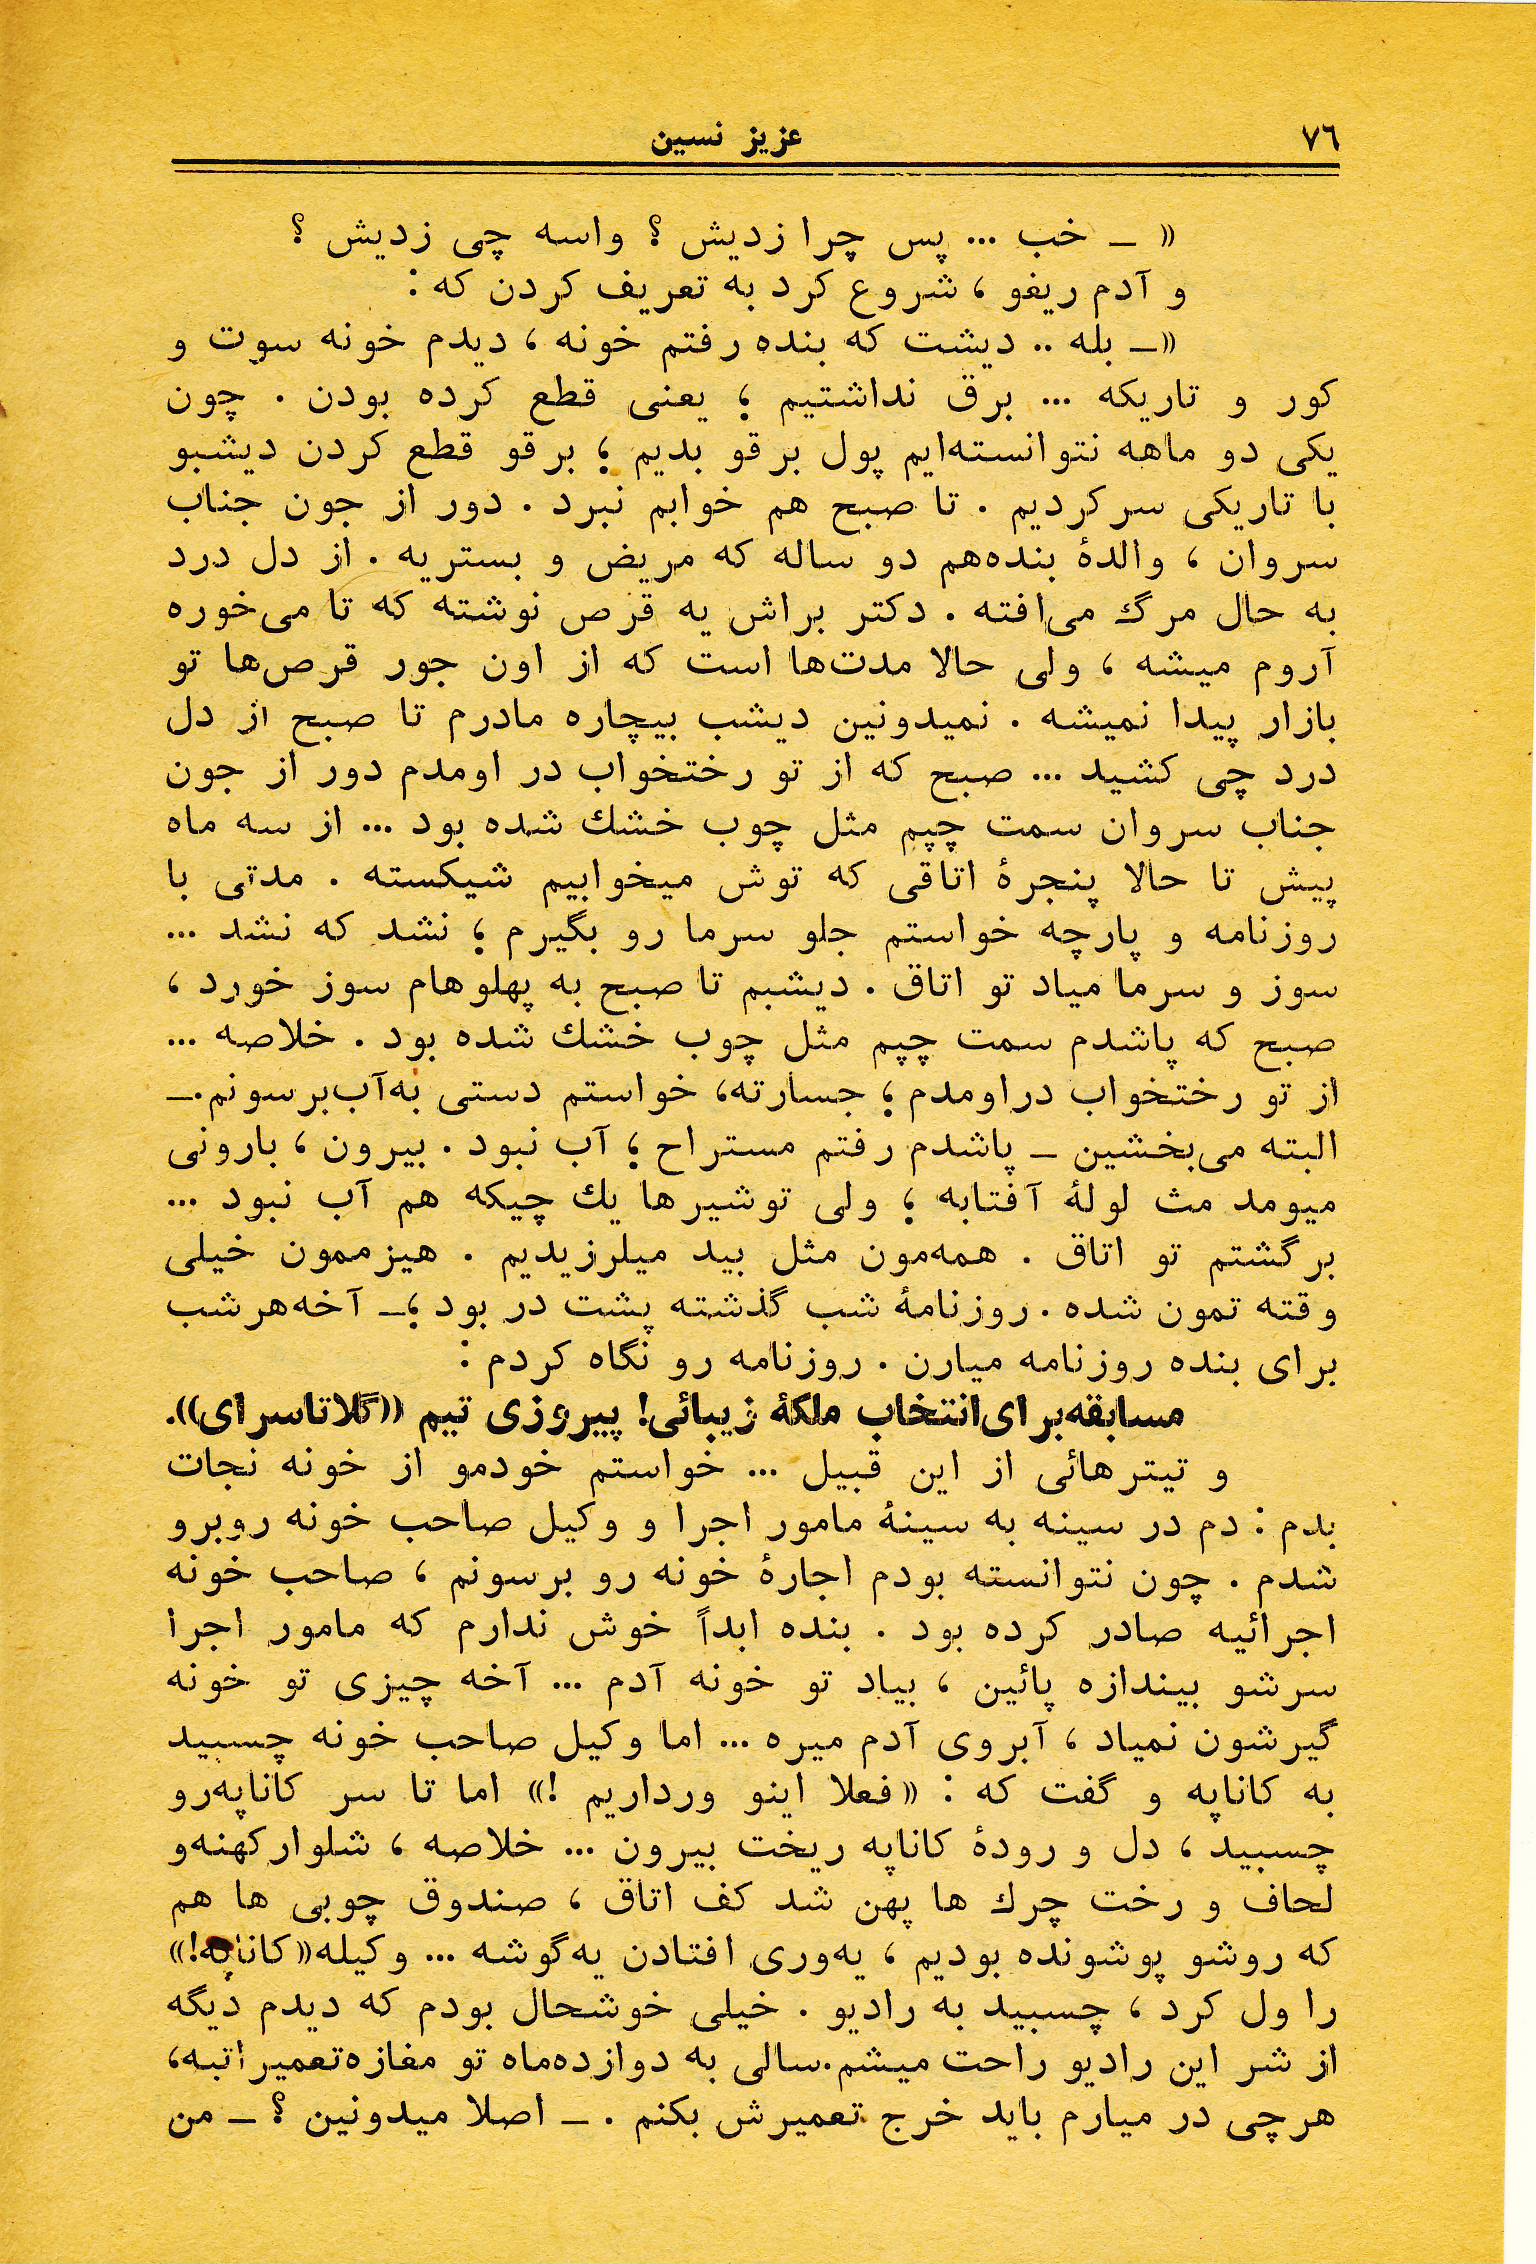 ۷۶ عزیز نسین
« ـ خب ... پس چرا زدیش ؟ واسه چی زدیش ؟
و آدم ریغو ، شروع کرد به تعریف کردن که :
«ـ بله .. دیشت که بنده رفتم خونه ، دیدم خونه سوت و
کور و تاریکه ... برق نداشتیم ؛ یعنی قطع کرده بودن . چون
یکی دو ماهه نتوانسته‌ایم پول برقو بدیم ؛ برقو قطع کردن دیشبو
با تاریکی سرکردیم . تا صبح هم خوابم نبرد . دور از جون جناب
سروان ، والدهٔ بنده‌هم دو ساله که مریض و بستریه . از دل درد
به حال مرگ می‌افته . دکتر براش یه قرص نوشته که تا می‌خوره
آروم میشه ، ولی حالا مدت‌ها است که از اون جور قرص‌ها تو
بازار پیدا نمیشه . نمیدونین دیشب بیچاره مادرم تا صبح از دل
درد چی کشید ... صبح که از تو رختخواب در اومدم دور از جون
جناب سروان سمت چپم مثل چوب خشك شده بود ... از سه ماه
پیش تا حالا پنجرهٔ اتاقی که توش میخوابیم شیکسته . مدتی با
روزنامه و پارچه خواستم جلو سرما رو بگیرم ؛ نشد که نشد ...
سوز و سرما میاد تو اتاق . دیشبم تا صبح به پهلوهام سوز خورد ،
صبح که پاشدم سمت چپم مثل چوب خشك شده بود . خلاصه ...
از تو رختخواب دراومدم ؛ جسارته، خواستم دستی به‌آب‌برسونم.ـ
البته می‌بخشین ـ پاشدم رفتم مستراح ؛ آب نبود . بیرون ، بارونی
میومد مث لولهٔ آفتابه ؛ ولی توشیرها یك چیکه هم آب نبود ...
برگشتم تو اتاق . همه‌مون مثل بید میلرزیدیم . هیزممون خیلی
وقته تمون شده . روزنامهٔ شب گذشته پشت در بود ؛ـ آخه‌هرشب
برای بنده روزنامه میارن . روزنامه رو نگاه کردم :
مسابقه‌برای‌انتخاب ملکهٔ زیبائی! پیروزی تیم «گلاتاسرای».
و تیترهائی از این قبیل ... خواستم خودمو از خونه نجات
بدم : دم در سینه به سینهٔ مامور اجرا و وکیل صاحب خونه روبرو
شدم . چون نتوانسته بودم اجارهٔ خونه رو برسونم ، صاحب خونه
اجرائیه صادر کرده بود . بنده ابداً خوش ندارم که مامور اجرا
سرشو بیندازه پائین ، بیاد تو خونه آدم ... آخه چیزی تو خونه
گیرشون نمیاد ، آبروی آدم میره ... اما وکیل صاحب خونه چسبید
به کاناپه و گفت که : «فعلا اینو ورداریم !» اما تا سر کاناپه‌رو
چسبید ، دل و رودهٔ کاناپه ریخت بیرون ... خلاصه ، شلوارکهنه‌و
لحاف و رخت چرك ها پهن شد کف اتاق ، صندوق چوبی ها هم
که روشو پوشونده بودیم ، یه‌وری افتادن یه‌گوشه ... وکیله«کاناپه!»
را ول کرد ، چسبید به رادیو . خیلی خوشحال بودم که دیدم دیگه
از شر این رادیو راحت میشم.سالی به دوازده‌ماه تو مغازه‌تعمیراتیه،
هرچی در میارم باید خرج تعمیرش بکنم . ـ اصلا میدونین ؟ ـ من